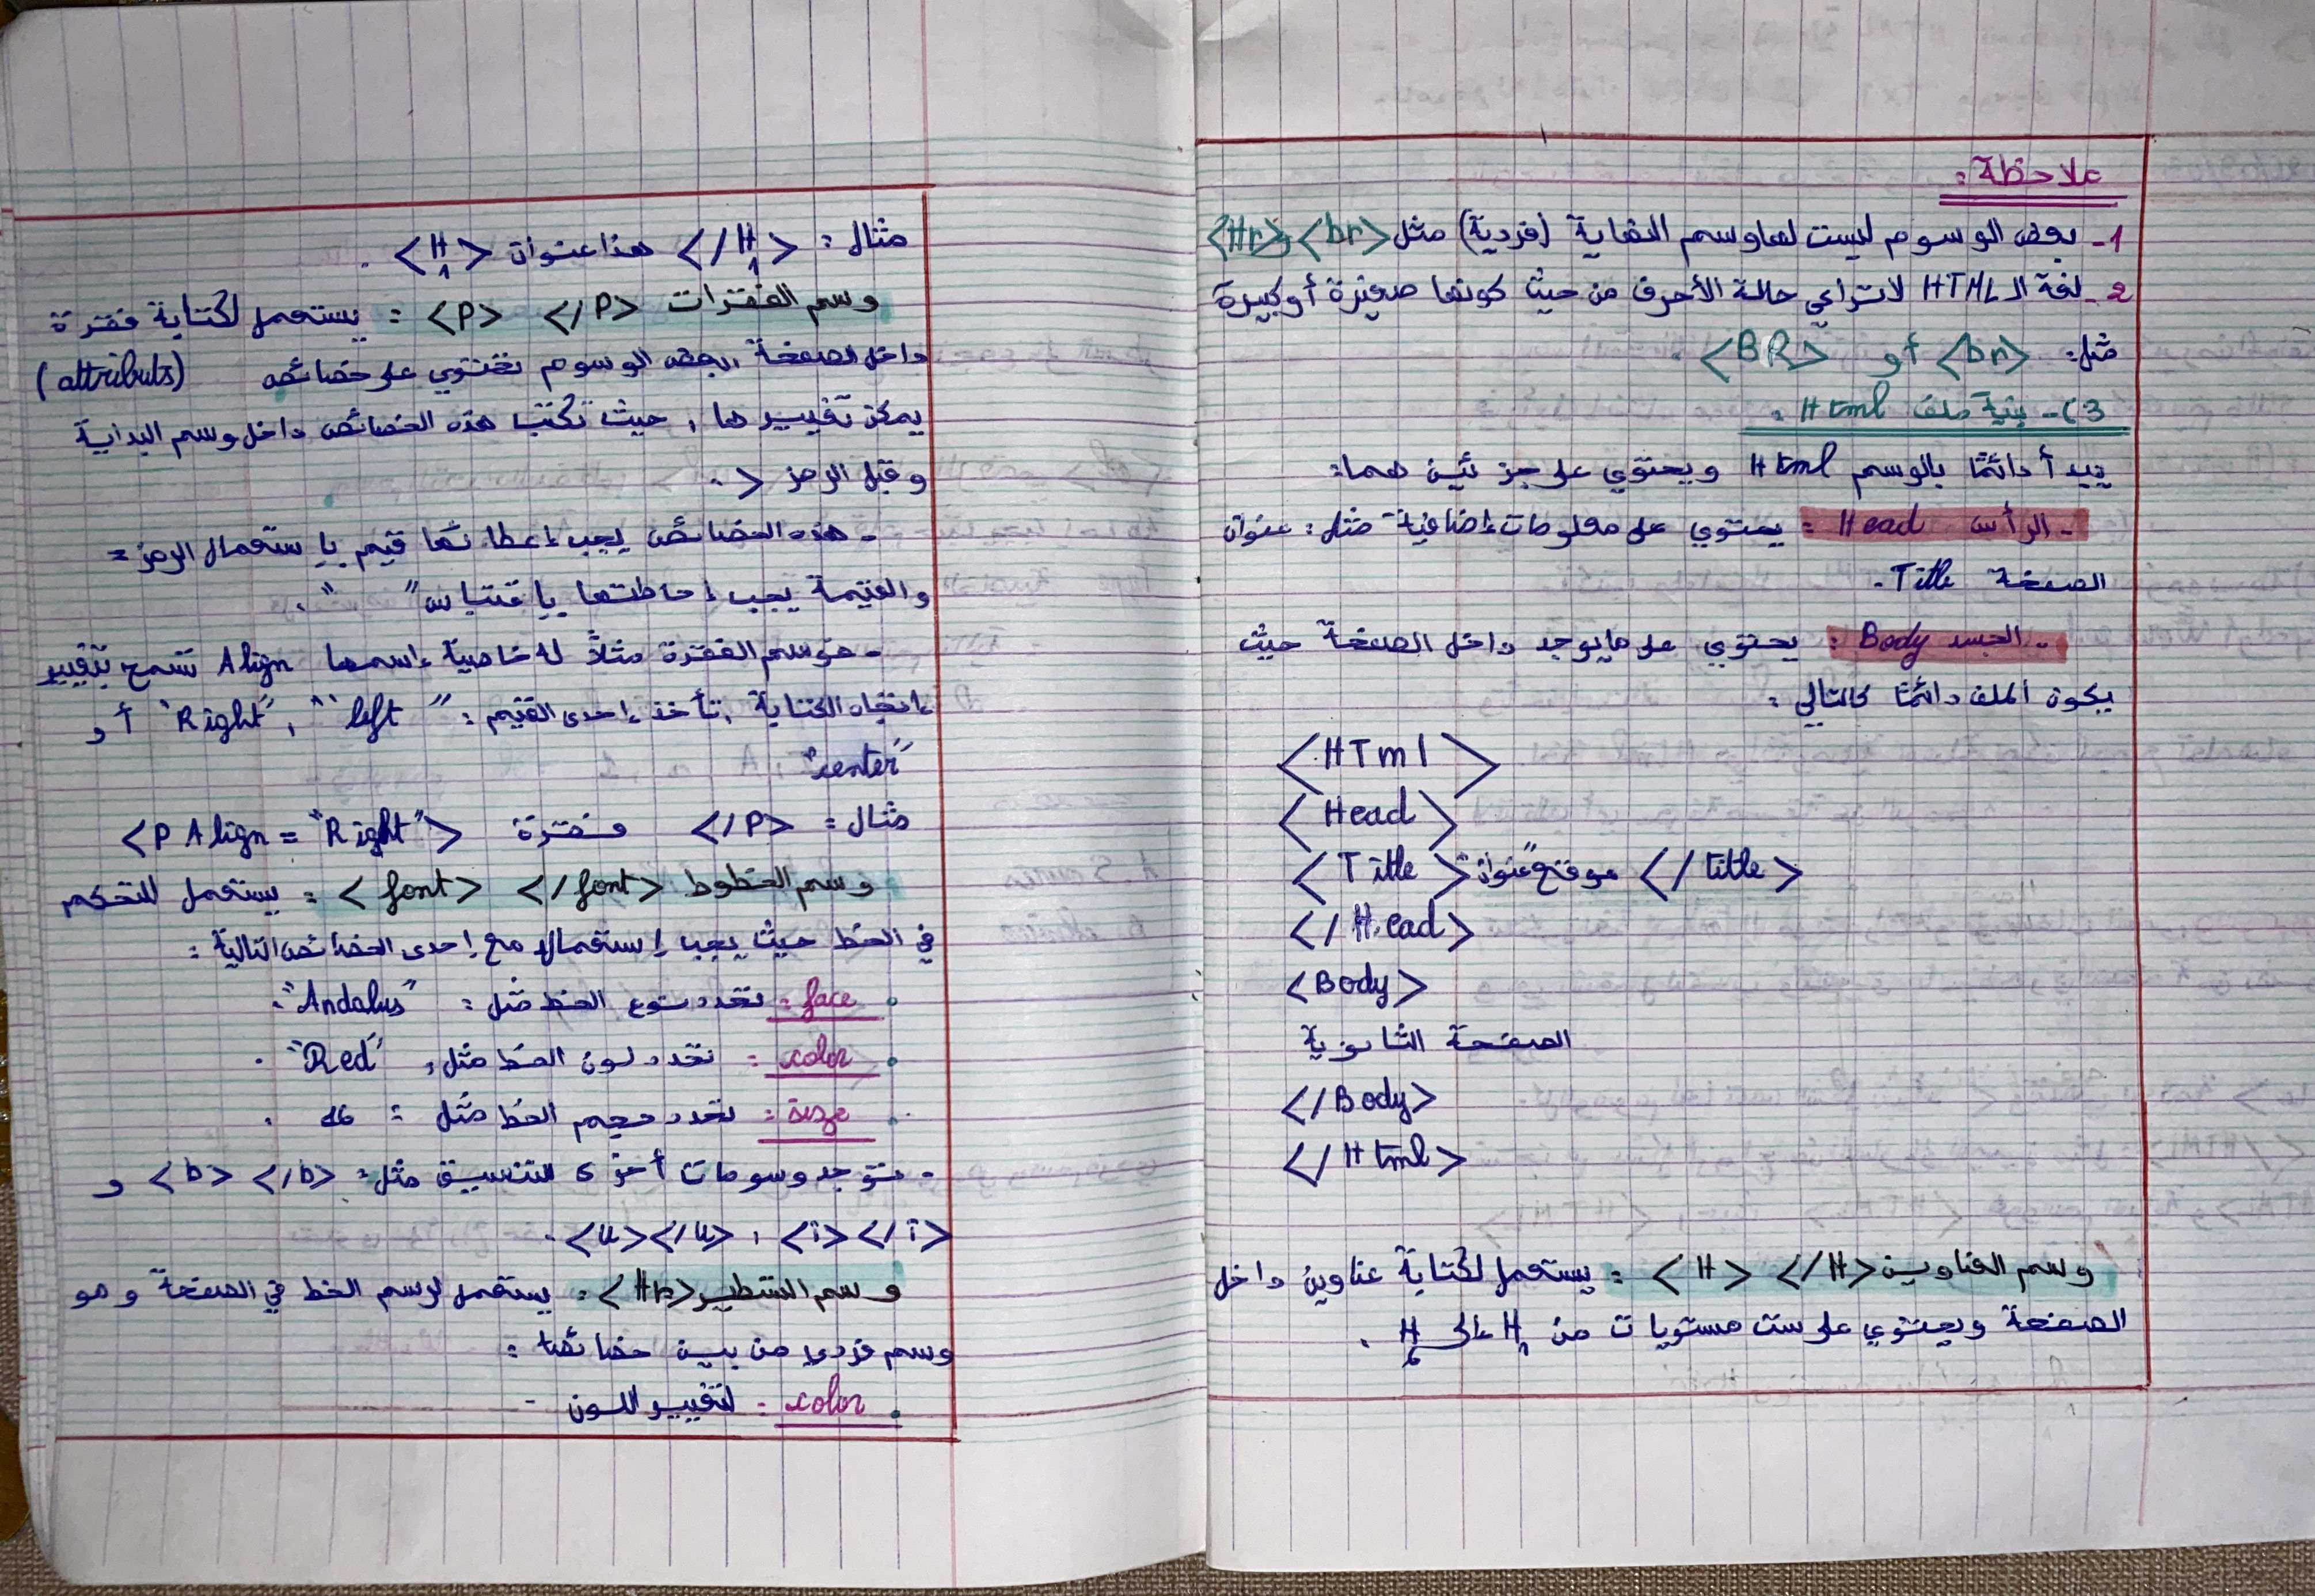 ملاحظة:
1- بعض الوسوم ليست لها وسم النهاية (فردية) مثل <br> و <Hr>
2- لغة الـ HTML لا تراعي حالة الأحرف من حيث كونها صغيرة أو كبيرة
مثل: <br> أو <BR>.
3)- بنية ملف Html:
يبدأ دائمًا بالوسم Html ويحتوي على جزئين هما:
- الرأس Head: يحتوي على معلومات إضافية مثل: عنوان
الصفحة Title.
- الجسد Body: يحتوي على ما يوجد داخل الصفحة حيث
يكون الملف دائمًا كالتالي:
<HTml>
<Head>
<Title> "موقع عنوان" </title>
</Head>
<Body>
الصفحة الثانوية
</Body>
</Html>
وسم العناوين <H> </H>: يستعمل لكتابة عناوين داخل
الصفحة ويحتوي على ست مستويات من H1 إلى H6.
مثال: <H1> هذا عنوان </H1>.
وسم الفقرات <P> </P>: يستعمل لكتابة فقرة
داخل الصفحة، بعض الوسوم تحتوي على خصائص (attributs)
يمكن تغييرها، حيث تكتب هذه الخصائص داخل وسم البداية
وقبل الرمز >.
- هذه الخصائص يجب إعطائها قيم بإستعمال الرمز =
والقيمة يجب إحاطتها بإقتباس " ".
- هو سم الفقرة مثلاً له خاصية إسمها Align تسمح بتغيير
إتجاه الكتابة، تأخذ إحدى القيم: "left", "Right" أو
"center"
مثال: <P Align = "Right"> فقرة </P>
وسم الخطوط <font> </font>: يستعمل للتحكم
في الخط حيث يجب إستعماله مع إحدى الخصائص التالية:
• face: تحدد نوع الخط مثل: "Andalus".
• color: تحدد لون الخط مثل: "Red".
• size: تحدد حجم الخط مثل: 16.
- توجد وسومات أخرى للتنسيق مثل: <b> </b> و
<i></i>, <u></u>.
وسم التسطير <Hr>: يستعمل لرسم الخط في الصفحة وهو
وسم فردي من بين خصائصه:
• color: لتغيير اللون -